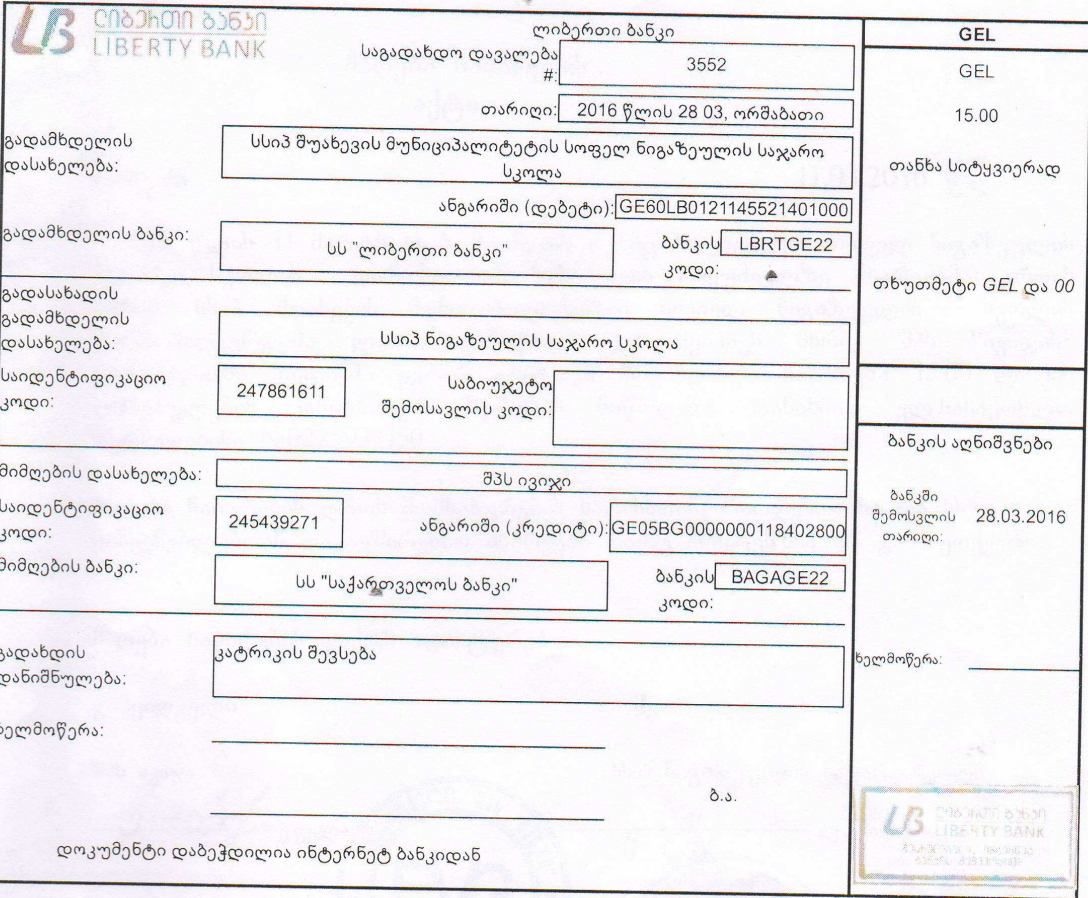 ლიბერთი ბანკი
LIBERTY BANK
ლიბერთი ბანკი
საგადახდო დავალება #: 3552
თარიღი: 2016 წლის 28 03, ორშაბათი
გადამხდელის დასახელება:
სსიპ შუახევის მუნიციპალიტეტის სოფელ ნიგაზეულის საჯარო
სკოლა
ანგარიში (დებეტი): GE60LB0121145521401000
გადამხდელის ბანკი: სს "ლიბერთი ბანკი"
ბანკის კოდი: LBRTGE22
გადასახადის
გადამხდელის
დასახელება:
სსიპ ნიგაზეულის საჯარო სკოლა
საიდენტიფიკაციო
კოდი:
247861611
საბიუჯეტო
შემოსავლის კოდი:
მიმღების დასახელება: შპს ივიჯი
საიდენტიფიკაციო
კოდი:
245439271
ანგარიში (კრედიტი): GE05BG0000000118402800
მიმღების ბანკი: სს "საქართველოს ბანკი"
ბანკის კოდი: BAGAGE22
გადახდის
დანიშნულება:
კატრიკის შევსება
ხელმოწერა:
ბ.ა.
დოკუმენტი დაბეჭდილია ინტერნეტ ბანკიდან
GEL
GEL
15.00
თანხა სიტყვიერად
თხუთმეტი GEL და 00
ბანკის აღნიშვნები
ბანკში
შემოსვლის
თარიღი:
28.03.2016
ხელმოწერა:
ლიბერთი ბანკი
LIBERTY BANK